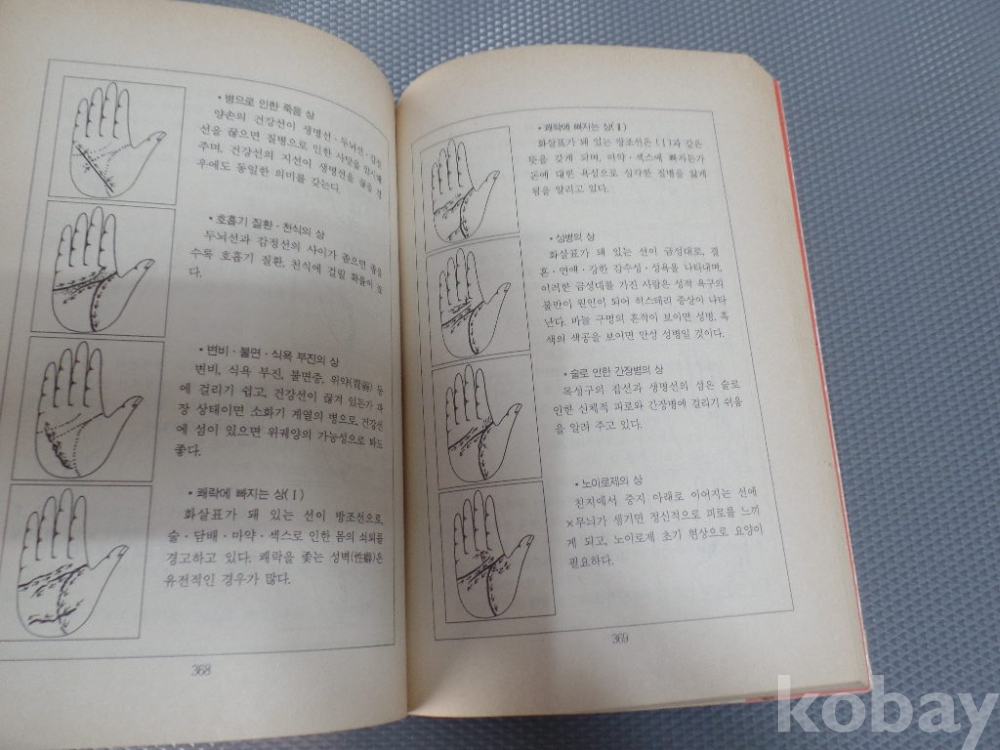 • 병으로 인한 죽음 상
양손의 건강선이 생명선·두뇌선·감정
선을 끊으면 질병으로 인한 사망을 암시해
주며, 건강선의 지선이 생명선을 끊을 경
우에도 동일한 의미를 갖는다.
• 호흡기 질환·천식의 상
두뇌선과 감정선의 사이가 좁으면 좁을
수록 호흡기 질환, 천식에 걸릴 확률이 높
다.
• 변비·불면·식욕 부진의 상
변비, 식욕 부진, 불면증, 위약(胃弱) 등
에 걸리기 쉽고, 건강선이 끊겨 있든가 파
장 상태이면 소화기 계열의 병으로, 건강선
에 섬이 있으면 위궤양의 가능성으로 봐도
좋다.
• 쾌락에 빠지는 상(Ⅰ)
화살표가 돼 있는 선이 방조선으로,
술·담배·마약·섹스로 인한 몸의 쇠퇴를
경고하고 있다. 쾌락을 좇는 성벽(性癖)은
유전적인 경우가 많다.
368
• 쾌락에 빠지는 상(Ⅱ)
화살표가 돼 있는 방조선은 (Ⅰ)과 같은
뜻을 갖게 되며, 마약·섹스에 빠지든가
돈에 대한 욕심으로 심각한 질병을 앓게
됨을 알리고 있다.
• 성병의 상
화살표가 돼 있는 선이 금성대로, 결
혼·연애·강한 감수성·성욕을 나타내며,
이러한 금성대를 가진 사람은 성적 욕구의
불만이 원인이 되어 히스테리 증상이 나타
난다. 바늘 구멍의 흔적이 보이면 성병, 흑
색의 색공을 보이면 만성 성병일 것이다.
• 술로 인한 간장병의 상
목성구의 잡선과 생명선의 섬은 술로
인한 신체적 피로와 간장병에 걸리기 쉬움
을 알려 주고 있다.
• 노이로제의 상
천지에서 중지 아래로 이어지는 선에
×무늬가 생기면 정신적으로 피로를 느끼
게 되고, 노이로제 초기 현상으로 요양이
필요하다.
369
kobay